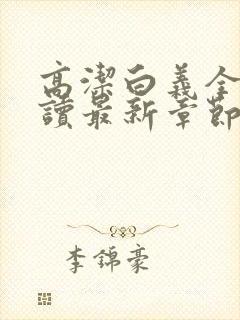 高潔白義全
讀最新章節
李錦豪